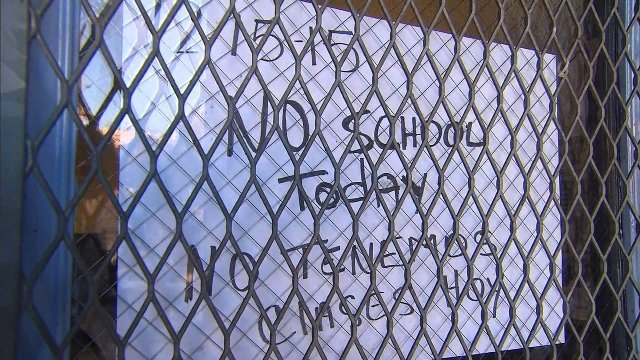 12-15-15
NO SCHOOL
Today
NO TENEMOS
CLASES HOY